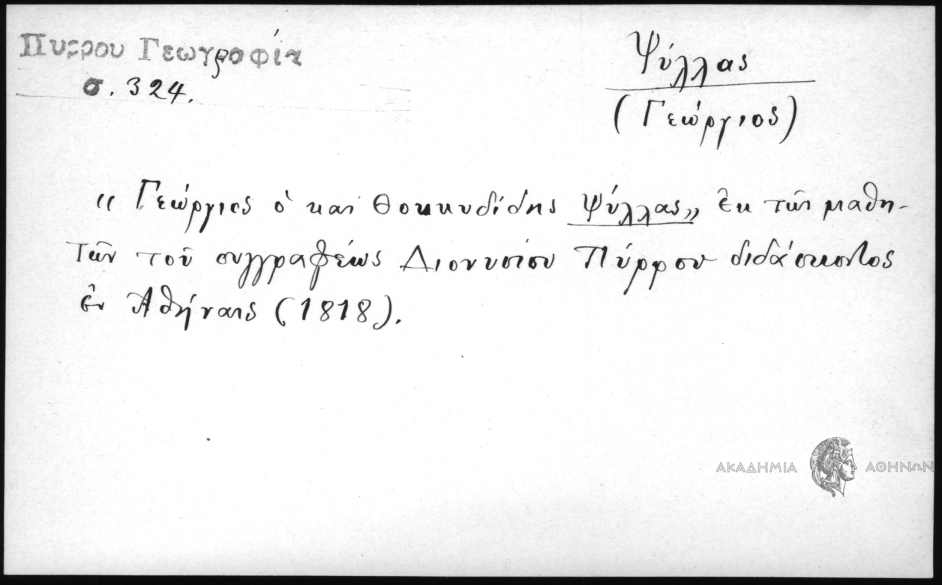 Πυρρου Γεωγροφία
σ. 324.
Ψύλλας
(Γεώργιος)
"Γεώργιος ὁ καὶ Θουκυδίδης Ψύλλας„ ἐκ τῶν μαθη-
τῶν τοῦ συγγραφέως Διονυσίου Πύρρου διδάσκοντος
ἐν Ἀθήναις (1818).
ΑΚΑΔΗΜΙΑ ΑΘΗΝΩΝ